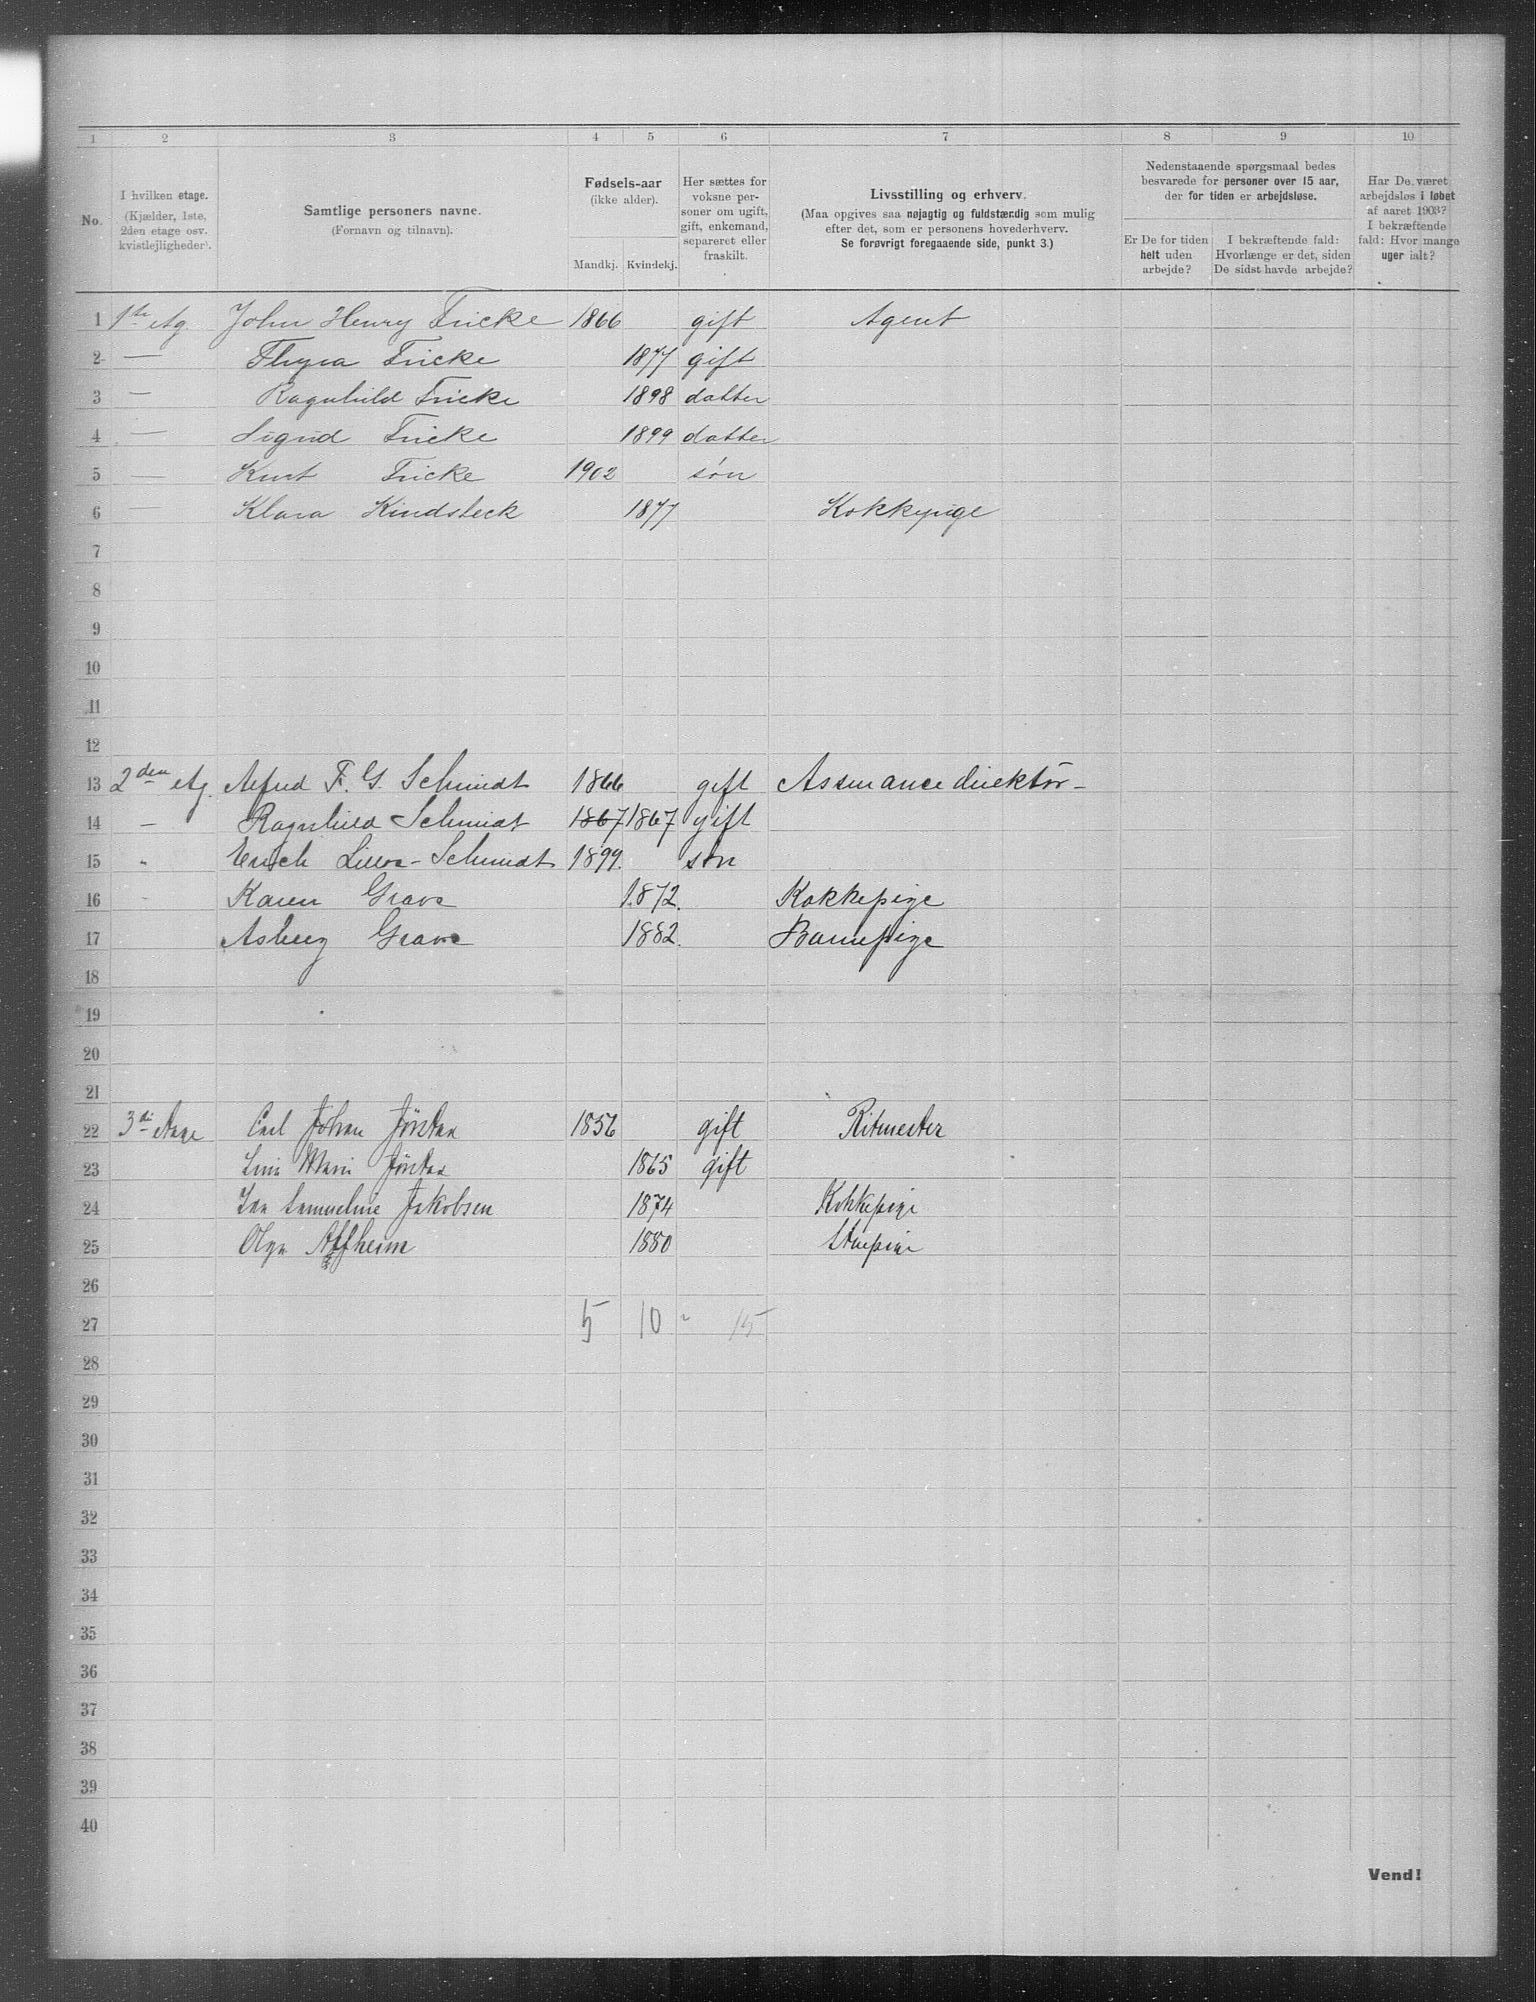 1 2 3 4 5 6 7 8 9 10
No.
I hvilken etage.
(Kjælder, 1ste,
2den etage osv.
kvistlejligheder).
Samtlige personers navne.
(Fornavn og tilnavn).
Fødsels-aar
(ikke alder).
Mandkj. Kvindekj.
Her sættes for
voksne per-
soner om ugift,
gift, enkemand,
separeret eller
fraskilt.
Livsstilling og erhverv.
(Maa opgives saa nøjagtig og fuldstændig som mulig
efter det, som er personens hovederhverv.
Se forøvrigt foregaaende side, punkt 3.)
Nedenstaaende spørgsmaal bedes
besvarede for personer over 15 aar,
der for tiden er arbejdsløse.
Er De for tiden
helt uden
arbejde?
I bekræftende fald:
Hvorlænge er det, siden
De sidst havde arbejde?
Har De været
arbejdsløs i løbet
af aaret 1903?
I bekræftende
fald: Hvor mange
uger ialt?
1 1ste Etg John Henry Fricke 1866 gift Agent
2 — Thyra Fricke 1877 gift
3 — Ragnhild Fricke 1898 datter
4 — Sigrid Fricke 1899 datter
5 — Kurt Fricke 1902 søn
6 — Klara Kindsbeck 1877 Kokkepige
7
8
9
10
11
12
13 2den Etg. Alfred F. G. Schmidt 1866 gift Assurancedirektør
14 — Ragnhild Schmidt 1867 1867 gift
15 " Erich Schmidt 1899. søn
16 " Karen Grave 1872. Kokkepige
17 Asberg Grave 1882. Barnepige
18
19
20
21
22 3die Etage Carl Johan Jørstad 1856 gift Ritmester
23 Marie Jørstad 1865 gift
24 Samueline Jakobsen 1874 Kokkepige
25 Olga 1880 Stuepige
26
27 5 10 " 15
28
29
30
31
32
33
34
35
36
37
38
39
40
Vend!